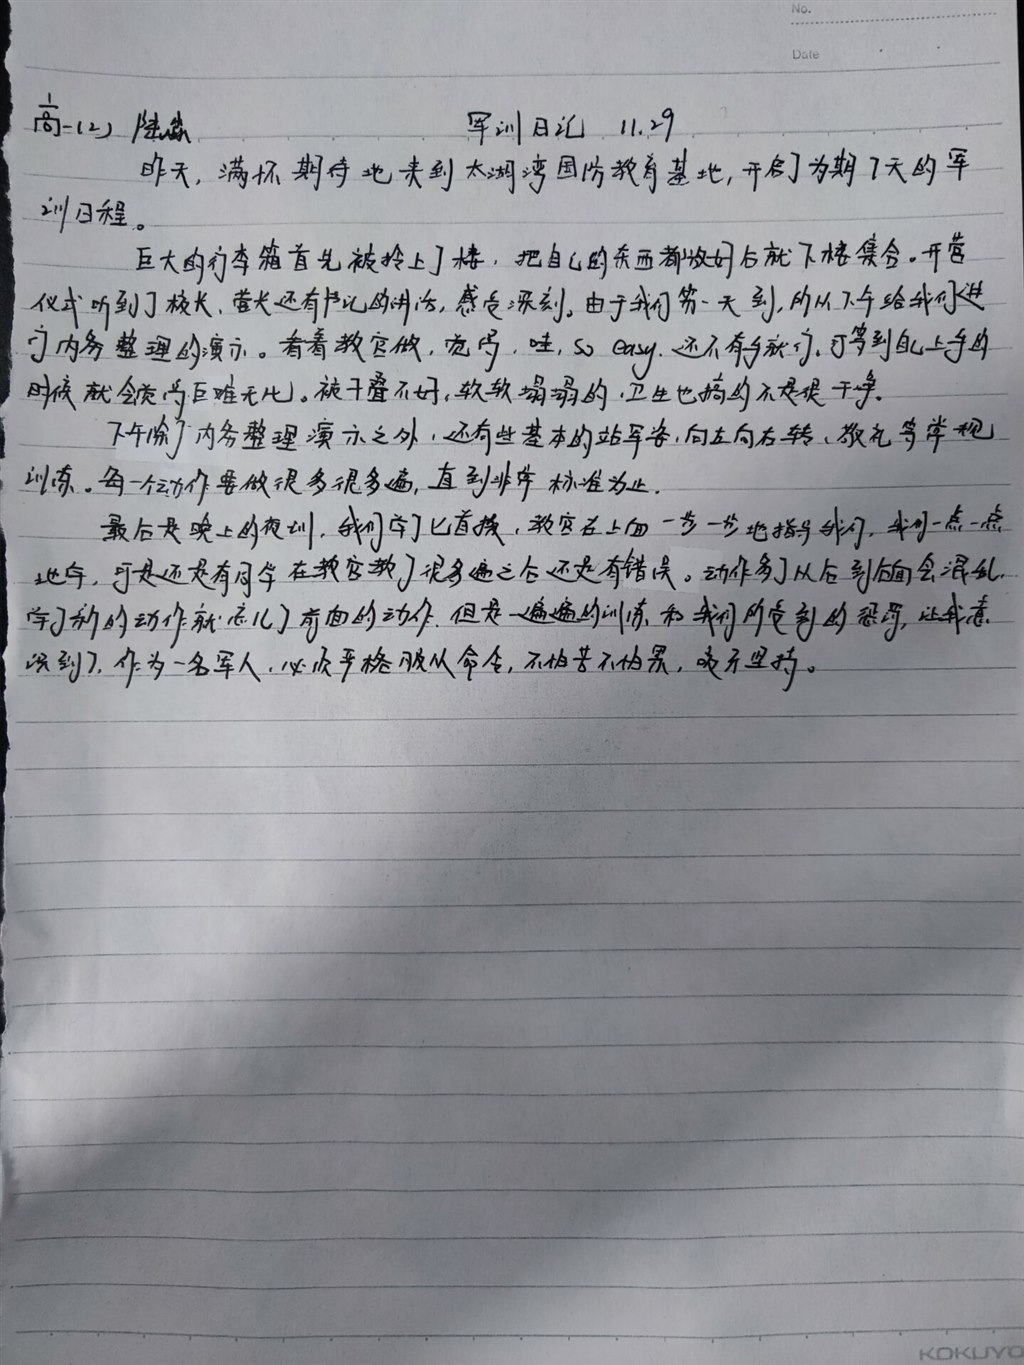 No.
Date
高一(2) 陆 军训日记 11.29
昨天，满怀期待地来到太湖湾国防教育基地，开启了为期7天的军
训日程。
巨大的行李箱首先被拎上了楼，把自己的东西都放好后就下楼集合。开营
仪式听到了校长、营长还有书记的讲话，感受深刻。由于我们第一天到，所以下午给我们进
行内务整理的演示。看着教官做，觉得，哇，so easy，还不有手就行。可等到自己上手的
时候就会觉得巨难无比。被子叠不好，软软塌塌的，卫生也搞的不是很干净。
下午除了内务整理演示之外，还有些基本的站军姿，向左向右转、敬礼等常规
训练。每一个动作要做很多很多遍，直到非常标准为止。
最后是晚上的夜训，我们学了匕首操，教官在上面一步一步地指导我们，我们一点一点
地学，可是还是有同学在教官教了很多遍之后还是有错误。动作多了从后到后面会混乱，
学了新的动作就忘记了前面的动作，但是一遍遍的训练和我们所受到的，让我意
识到了，作为一名军人，必须严格服从命令，不怕苦不怕累，坚持。
KOKUYO